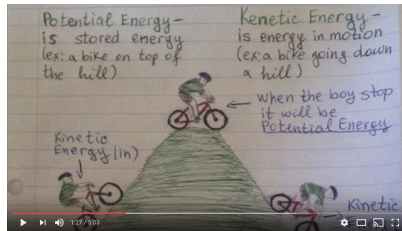 Potential Energy-
is stored energy
(ex: a bike on top of
the hill)
Kenetic Energy-
is energy in motion
(ex: a bike going down
a hill)
When the boy stop
it will be
Potential Energy
Kinetic
Energy (in)
Kinetic
1:27 / 5:03